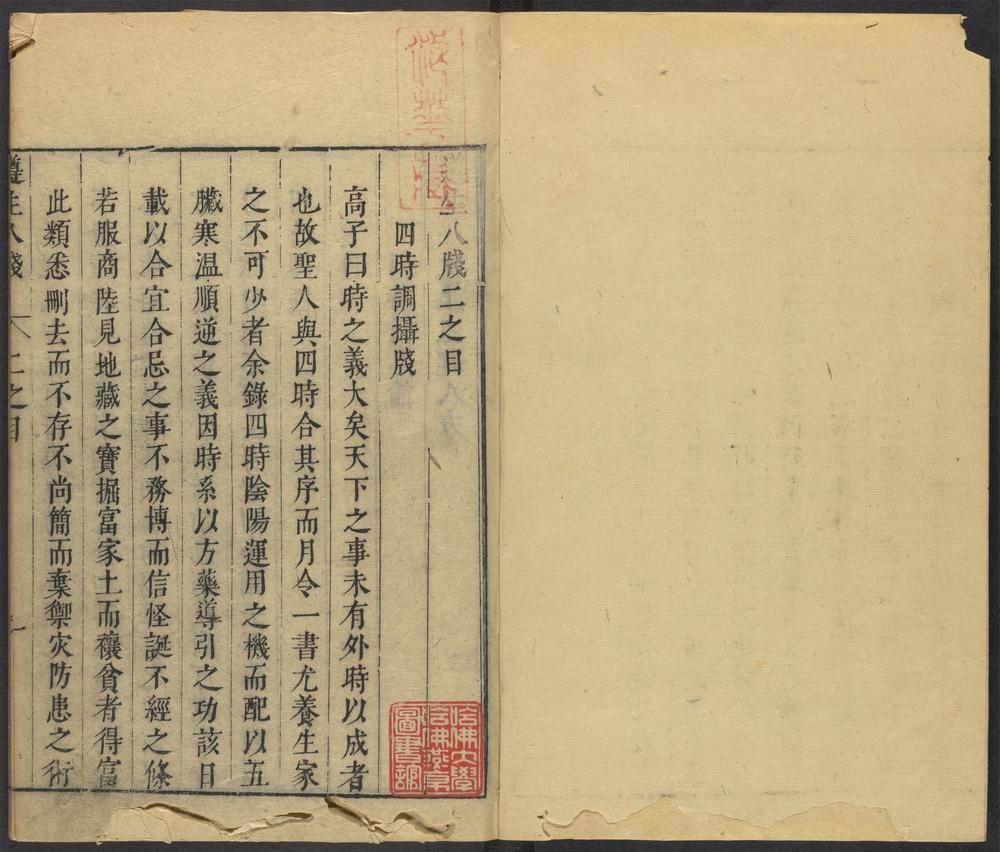 遵生八牋二之目
四時調攝牋
高子曰時之義大矣天下之事未有外時以成者
也故聖人與四時合其序而月令一書尤養生家
之不可少者余錄四時陰陽運用之機而配以五
臟寒温順逆之義因時系以方藥導引之功該日
載以合宜合忌之事不務博而信怪誕不經之條
若服商陸見地藏之寶掘富家土而禳貧者得富
此類悉刪去而不存不尚簡而棄禦灾防患之術
遵生八牋 二之目 一
哈佛大學
哈佛燕京
圖書館